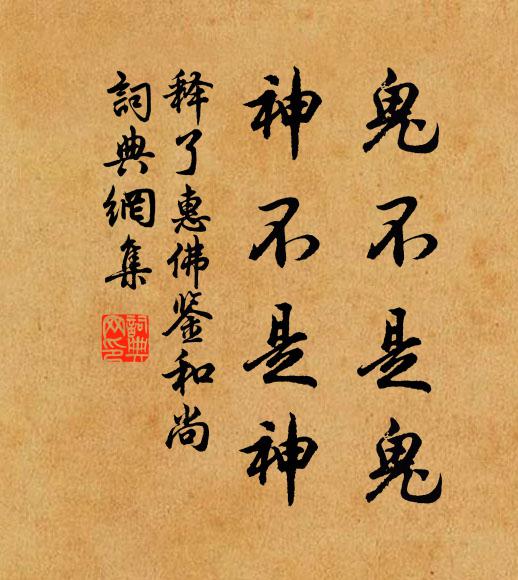 鬼不是鬼
神不是神
释了惠佛鉴和尚
詞典網集
詞典
網印